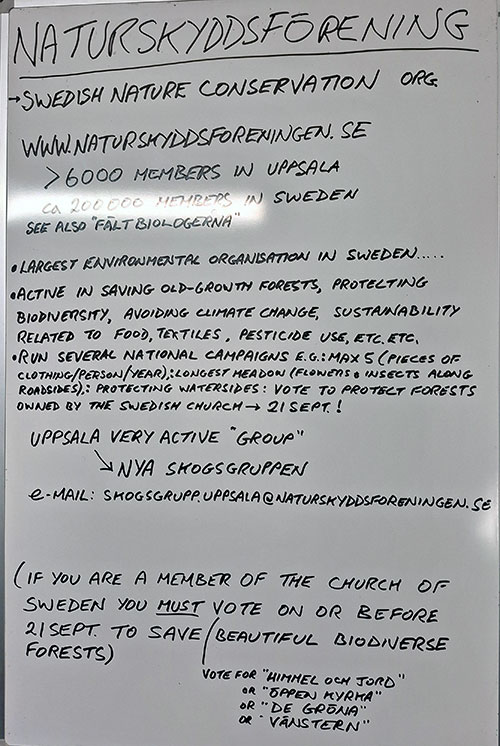 NATURSKYDDSFÖRENING
→SWEDISH NATURE CONSERVATION ORG.
WWW.NATURSKYDDSFORENINGEN.SE
>6000 MEMBERS IN UPPSALA
ca 200 000 MEMBERS IN SWEDEN
SEE ALSO "FÄLTBIOLOGERNA"
•LARGEST ENVIRONMENTAL ORGANISATION IN SWEDEN.....
•ACTIVE IN SAVING OLD-GROWTH FORESTS, PROTECTING
BIODIVERSITY, AVOIDING CLIMATE CHANGE, SUSTAINABILITY
RELATED TO FOOD, TEXTILES, PESTICIDE USE, ETC. ETC.
•RUN SEVERAL NATIONAL CAMPAIGNS E.G.: MAX 5 (PIECES OF
CLOTHING/PERSON/YEAR),: LONGEST MEADOW (FLOWERS & INSECTS ALONG
ROADSIDES),: PROTECTING WATERSIDES: VOTE TO PROTECT FORESTS
OWNED BY THE SWEDISH CHURCH → 21 SEPT.!
UPPSALA VERY ACTIVE "GROUP"
↘NYA SKOGSGRUPPEN
e-MAIL: SKOGSGRUPP.UPPSALA@NATURSKYDDSFORENINGEN.SE
(IF YOU ARE A MEMBER OF THE CHURCH OF
SWEDEN YOU MUST VOTE ON OR BEFORE
21 SEPT. TO SAVE BEAUTIFUL BIODIVERSE
FORESTS)
VOTE FOR "HIMMEL OCH JORD"
OR "ÖPPEN KYRKA"
OR "DE GRÖNA"
OR "VÄNSTERN"